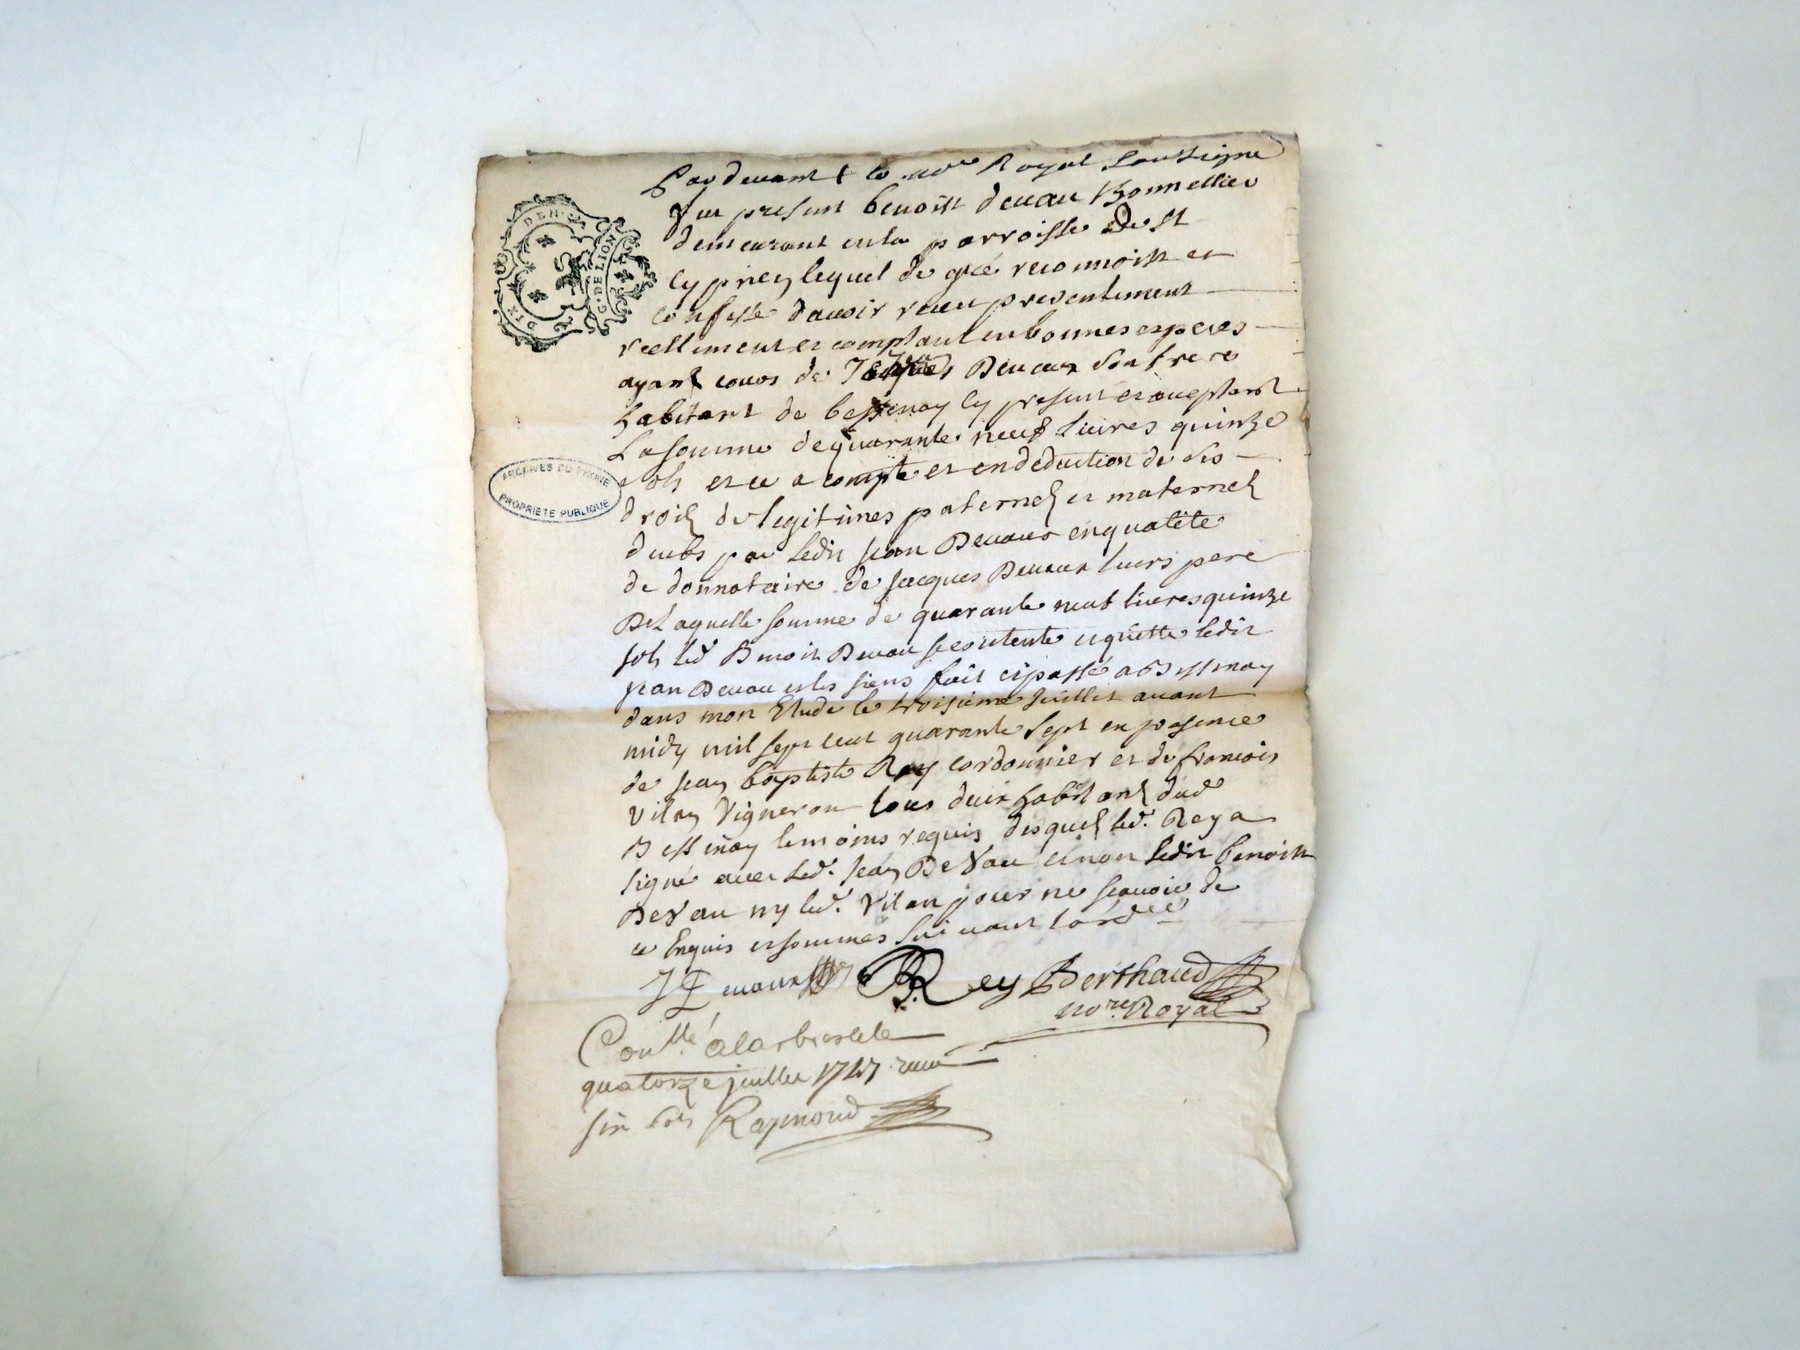 Pardevant le no.re Royal Soussigne
fut present benoist devau Bonnellier
demeurant en la parroisse De St
Cyprien lequel de gré reconnoist et
confesse davoir receu presentement
reellement et comptant en bonnes especes
ayant cours de Jean Devaux son frere
habitant de bessenay Cy present et acceptant
La somme de quarante neuf Livres quinze
sols et ce a compte et en deduction de ses
droits de legitimes paternels et maternels
deubs par Ledit Jean Devaux en qualité
de donnataire de Jacques Devaux leurs pere
De Laquelle somme de quarante neuf livres quinze
sols led. Benoit Devau se contente et quitte ledit
Jean Devau et les siens fait et passé a Bessenay
dans mon Etude le troisieme Juillet avant
midy mil sept cent quarante sept en presence
de Jean baptiste Rey cordonnier et de francois
Vilan Vigneron tous deux habitants dud.
Bessenay temoins requis desquels led. Rey a
signé avec Led. Jean DeVau et non Ledit benoist
DeVau ny led. Vilan pour ne scavoir de
ce Enquis et sommés suivant lord.ce
J Devaux Rey Berthaud
no.re Royal
Con.llé a Larbresle le
quatorze juillet 1747 receu
six sols Raymond
DIX DEN.
G. DE LION
ARCHIVES DU RHONE
PROPRIETE PUBLIQUE